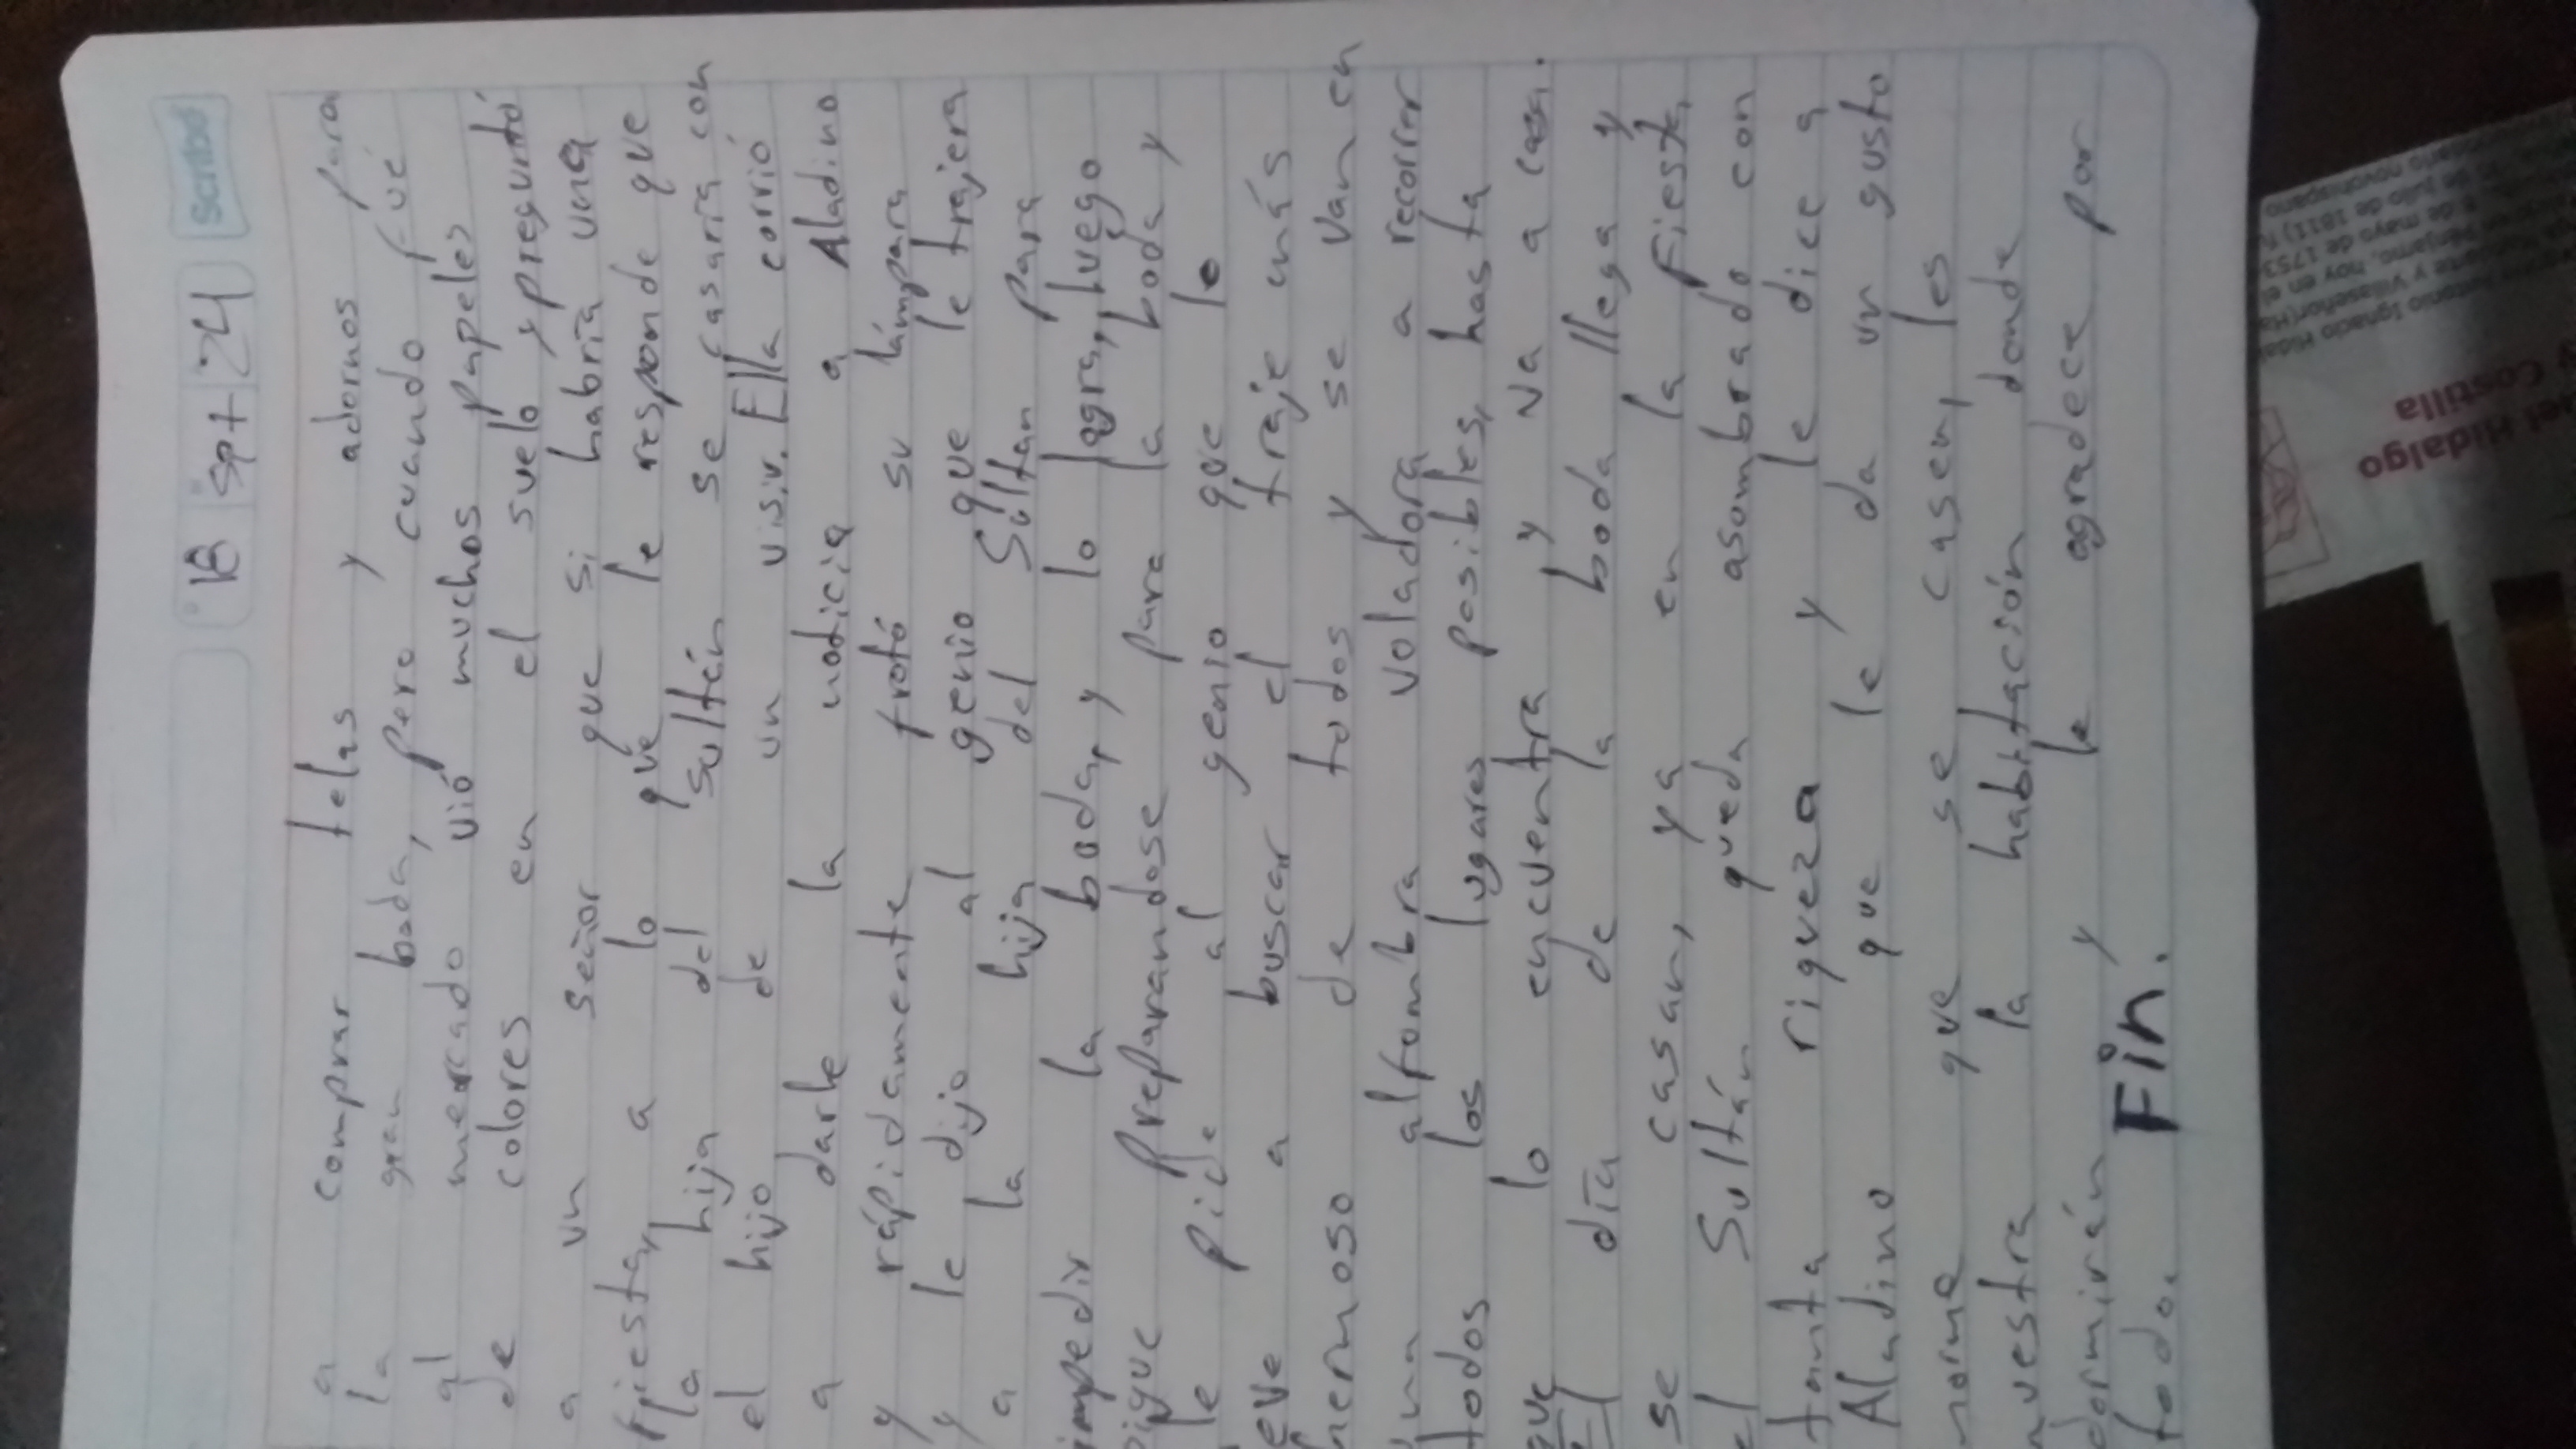 18 Spt 24 Scribe
a comprar telas y adornos para
la gran boda, pero cuando fué
al mercado vió muchos papeles
de colores en el suelo y preguntó
a un señor que si habría una
fiesta, a lo que le responde que
la hija del sultán se casaría con
el hijo de un visir. Ella corrió
a darle la noticia a Aladino
y rápidamente frotó su lámpara
y le dijo al genio que le trajera
a la hija del Sultan para
impedir la boda, y lo logra, luego
sigue preparandose para la boda y
le pide al genio que le
eve a buscar el traje más
hermoso de todos y se van en
una alfombra voladora a recorrer
todos los lugares posibles, hasta
que lo encuentra y va a casa.
El día de la boda llega y
se casan, ya en la fiesta,
el Sultán queda asombrado con
tanta riqueza y le dice a
Aladino que le da un gusto
norme que se casen, les
muestra la habitación donde
dormirán y le agradece por
todo. Fin.
del Hidalgo
y Costilla
Antonio Ignacio Hidal
arte y Villaseñor
Pénjamo, hoy en el
8 de mayo de 1753
de julio de 1811)
novohispano